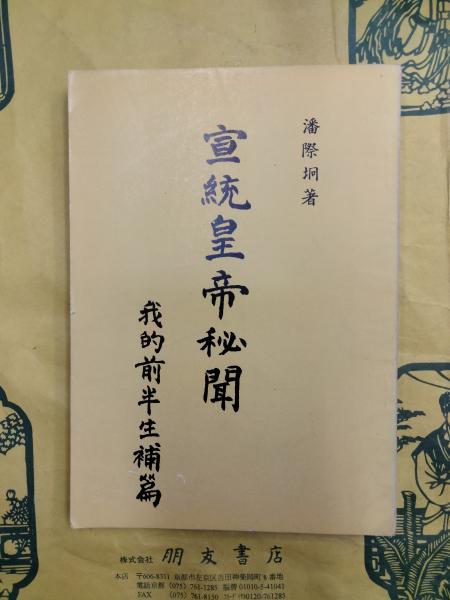 潘際坰著
宣統皇帝秘聞
我的前半生補篇
株式会社 朋友書店
本店 〒606-8311 京都市左京区吉田神楽岡町8番地
電話京都 (075) 761-1285 振替 01010-5-41041
FAX (075) 761-8150 ﾌﾘｰﾀﾞｲﾔﾙ00120-761285